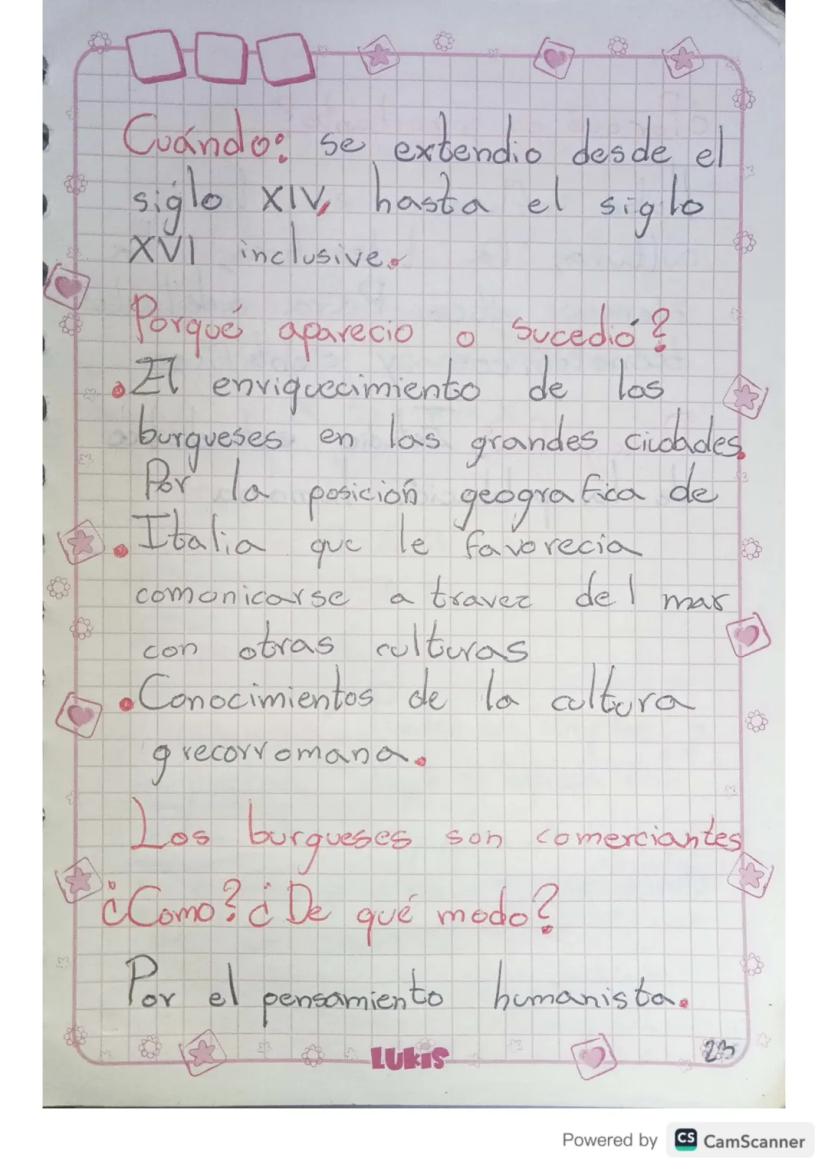 Cuándo: se extendio desde el
siglo XIV, hasta el siglo
XVI inclusive.
Porqué aparecio o sucedió?
• El enriquecimiento de los
burgueses en las grandes ciudades.
Por la posición geografica de
• Italia que le favorecia
comunicarse a travez del mar
con otras culturas
• Conocimientos de la cultura
grecorromana.
Los burgueses son comerciantes
¿Como? ¿De qué modo?
Por el pensamiento humanista.
LUKIS
23
Powered by CS CamScanner